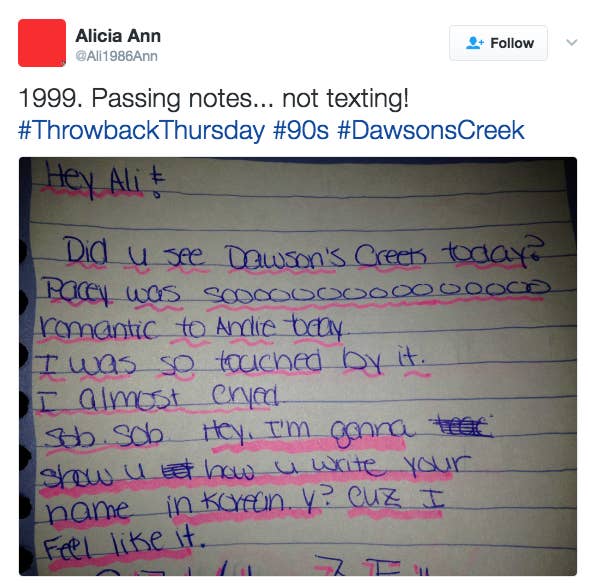 Alicia Ann
@Ali1986Ann
Follow
1999. Passing notes... not texting!
#ThrowbackThursday #90s #DawsonsCreek
Hey Ali!
Did u see Dawson's Creek today?
Pacey was sooooooooooooooooo
romantic to Andie today.
I was so touched by it.
I almost cryed.
Sob. Sob. Hey, I'm gonna
show u how u write your
name in Korean. y? cuz I
Feel like it.